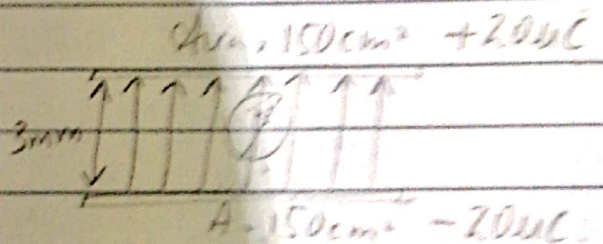 Area. 150cm² +20uC
3mm
A. 150cm² -20uC